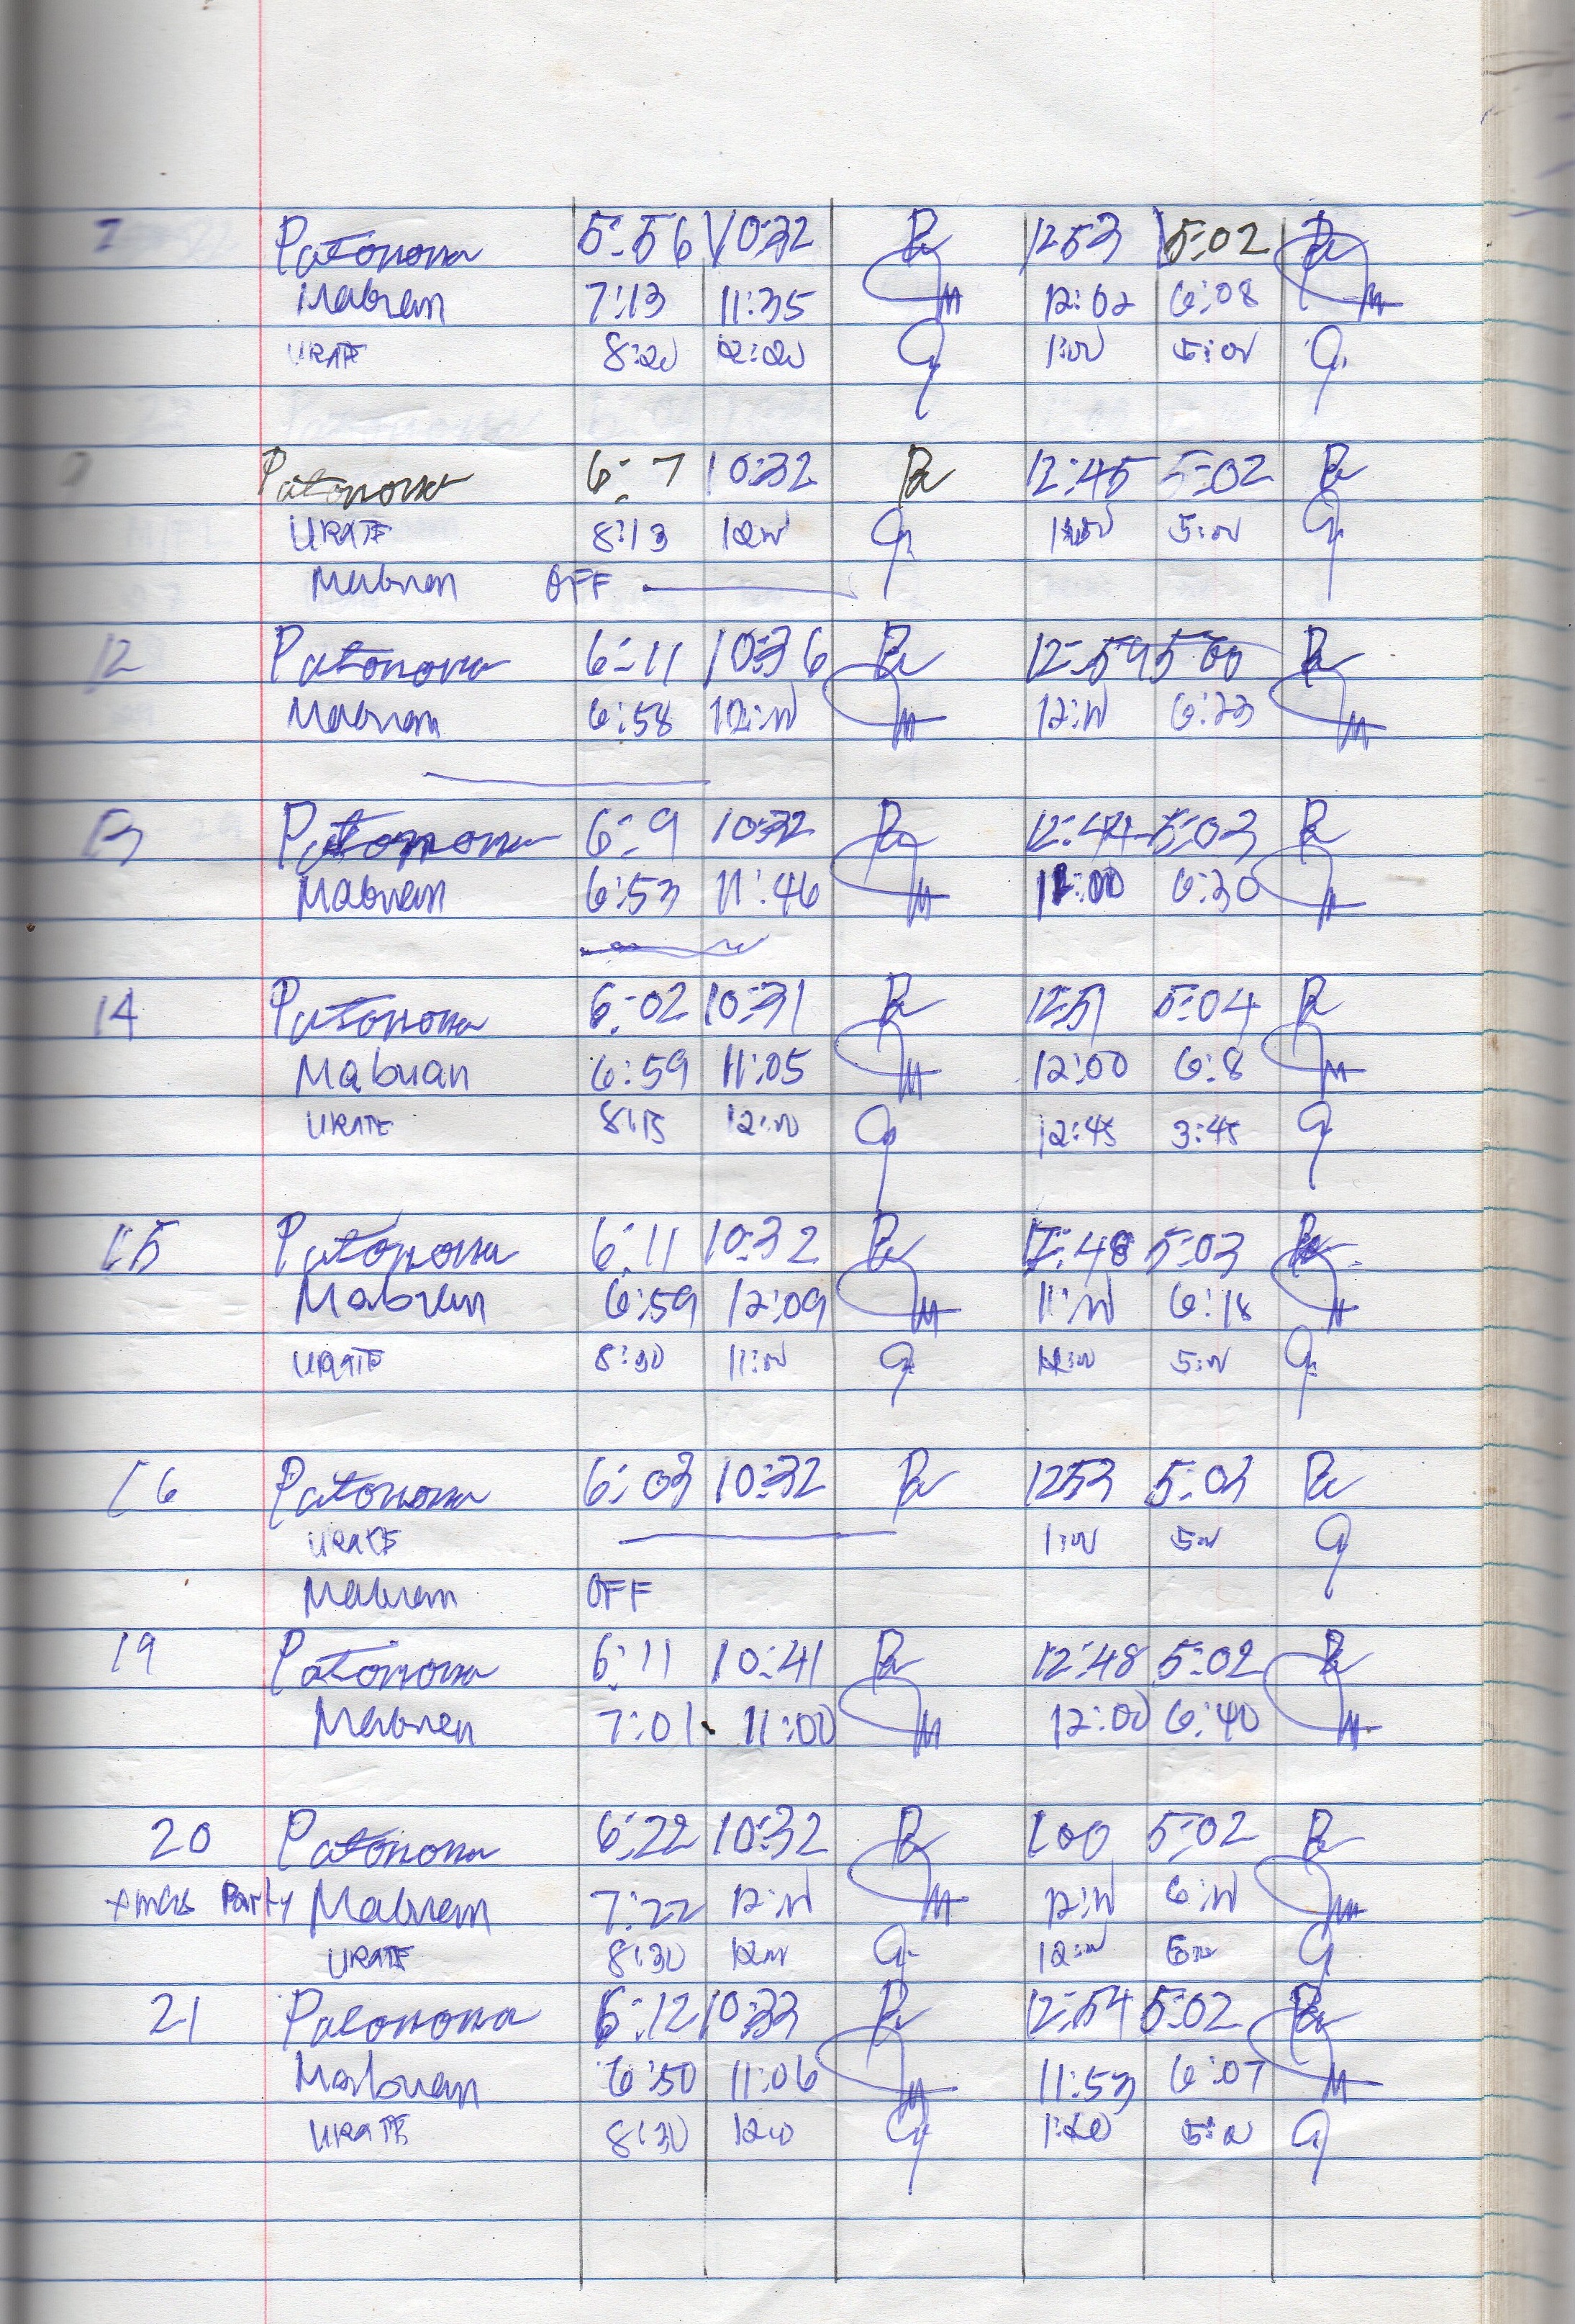 7 Patonona 5:56 10:32 Pa 12:53 5:02 Pa
Mabuan 7:13 11:35 M 12:02 6:08 M
URATE 8:20 12:20 1:00 5:00
Patonona 6:7 10:32 Pa 12:45 5:02 Pa
URATE 8:13 12:00 1:00 5:00
Mabuan OFF
12 Patonona 6:11 10:36 Pa 12:59 5:00 Pa
Mabuan 6:58 12:00 M 12:00 6:23 M
13 Patonona 6:9 10:32 Pa 12:44 5:03 Pa
Mabuan 6:53 11:46 M 12:00 6:30 M
14 Patonona 6:02 10:31 Pa 12:51 5:04 Pa
Mabuan 6:59 11:05 M 12:00 6:8 M
URATE 8:15 12:00 12:45 3:45
15 Patonona 6:11 10:32 Pa 12:48 5:03 Pa
Mabuan 6:59 12:09 M 11:00 6:18 M
URATE 8:30 11:00 12:00 5:00
16 Patonona 6:03 10:32 Pa 1253 5:03 Pa
URATE 1:00 5:00
Mabuan OFF
19 Patonona 6:11 10:41 Pa 12:48 5:02 Pa
Mabuan 7:01 11:00 M 12:00 6:40 M
20 Patonona 6:22 10:32 Pa 1:00 5:02 Pa
Xmas Party Mabuan 7:22 12:00 M 12:00 6:00 M
URATE 8:30 12:00 12:00 5:00
21 Patonona 6:12 10:33 Pa 12:54 5:02 Pa
Mabuan 6:50 11:06 M 11:53 6:07 M
URATE 8:30 12:00 1:20 5:00